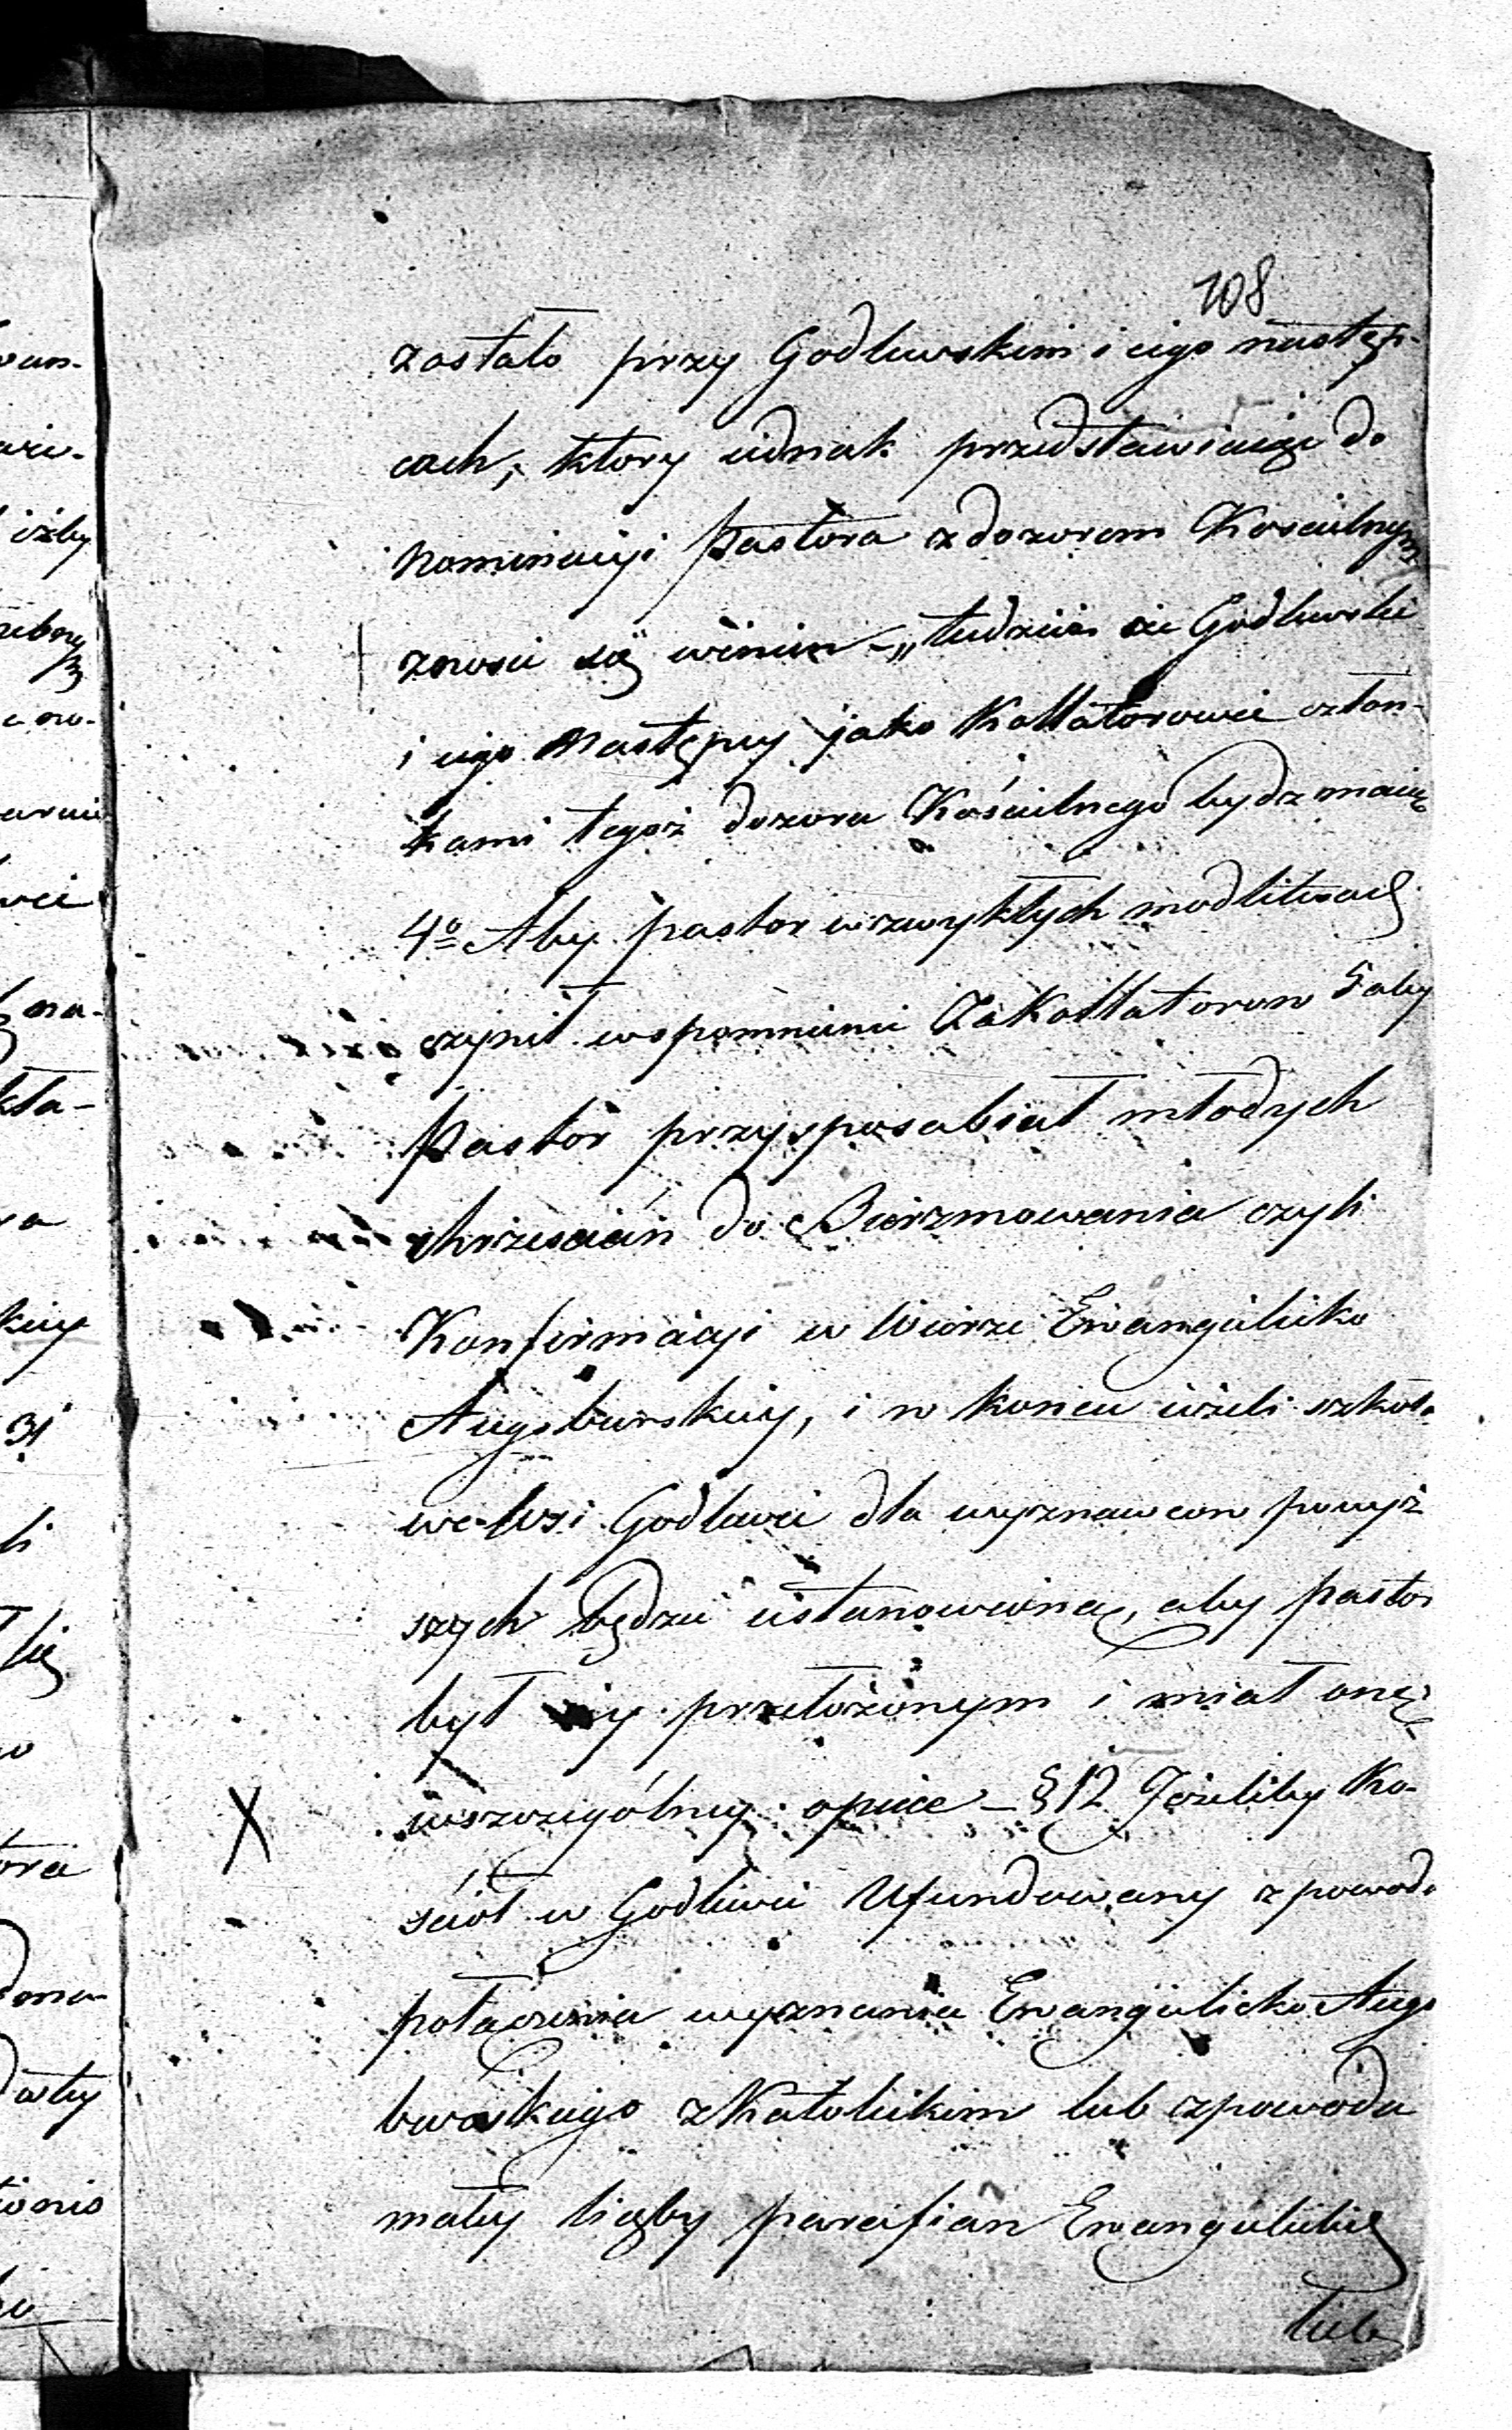 108
zostało przy Godlewskim i iego następ-
cach, ktory iednak przedstawiaiąc do
Nominacyi Pastora z dozorem Kościelnym
znosić się winien – „tudzież że Godlewski
i iego Następcy jako Kollatorowie człon-
kami tegoż dozoru Kościelnego bydz maią
4o Aby pastor w zwykłych modlitwach
czynił wspomnienie Za Kollatorow 5 aby
Pastor przysposabiał młodych
chrześcian do Bierzmowania czyli
Konfirmacyi w Wierze Ewangelicko
Augsburskiey, i w koncu ieżeli szkoła
we Wsi Godlewie dla wyznawcow powyż
szych będzie ustanowioną, aby pastor
był iey przełożonym i miał onę
w szczegolney opiece – § 12 Jeżeliby Ko-
ściół w Godlewie Ufundowany z powodu
połączenia wyznania Ewangelicko Augs
burskiego z Katolickim lub z powodu
małey liczby parafian Ewangelickich
lub